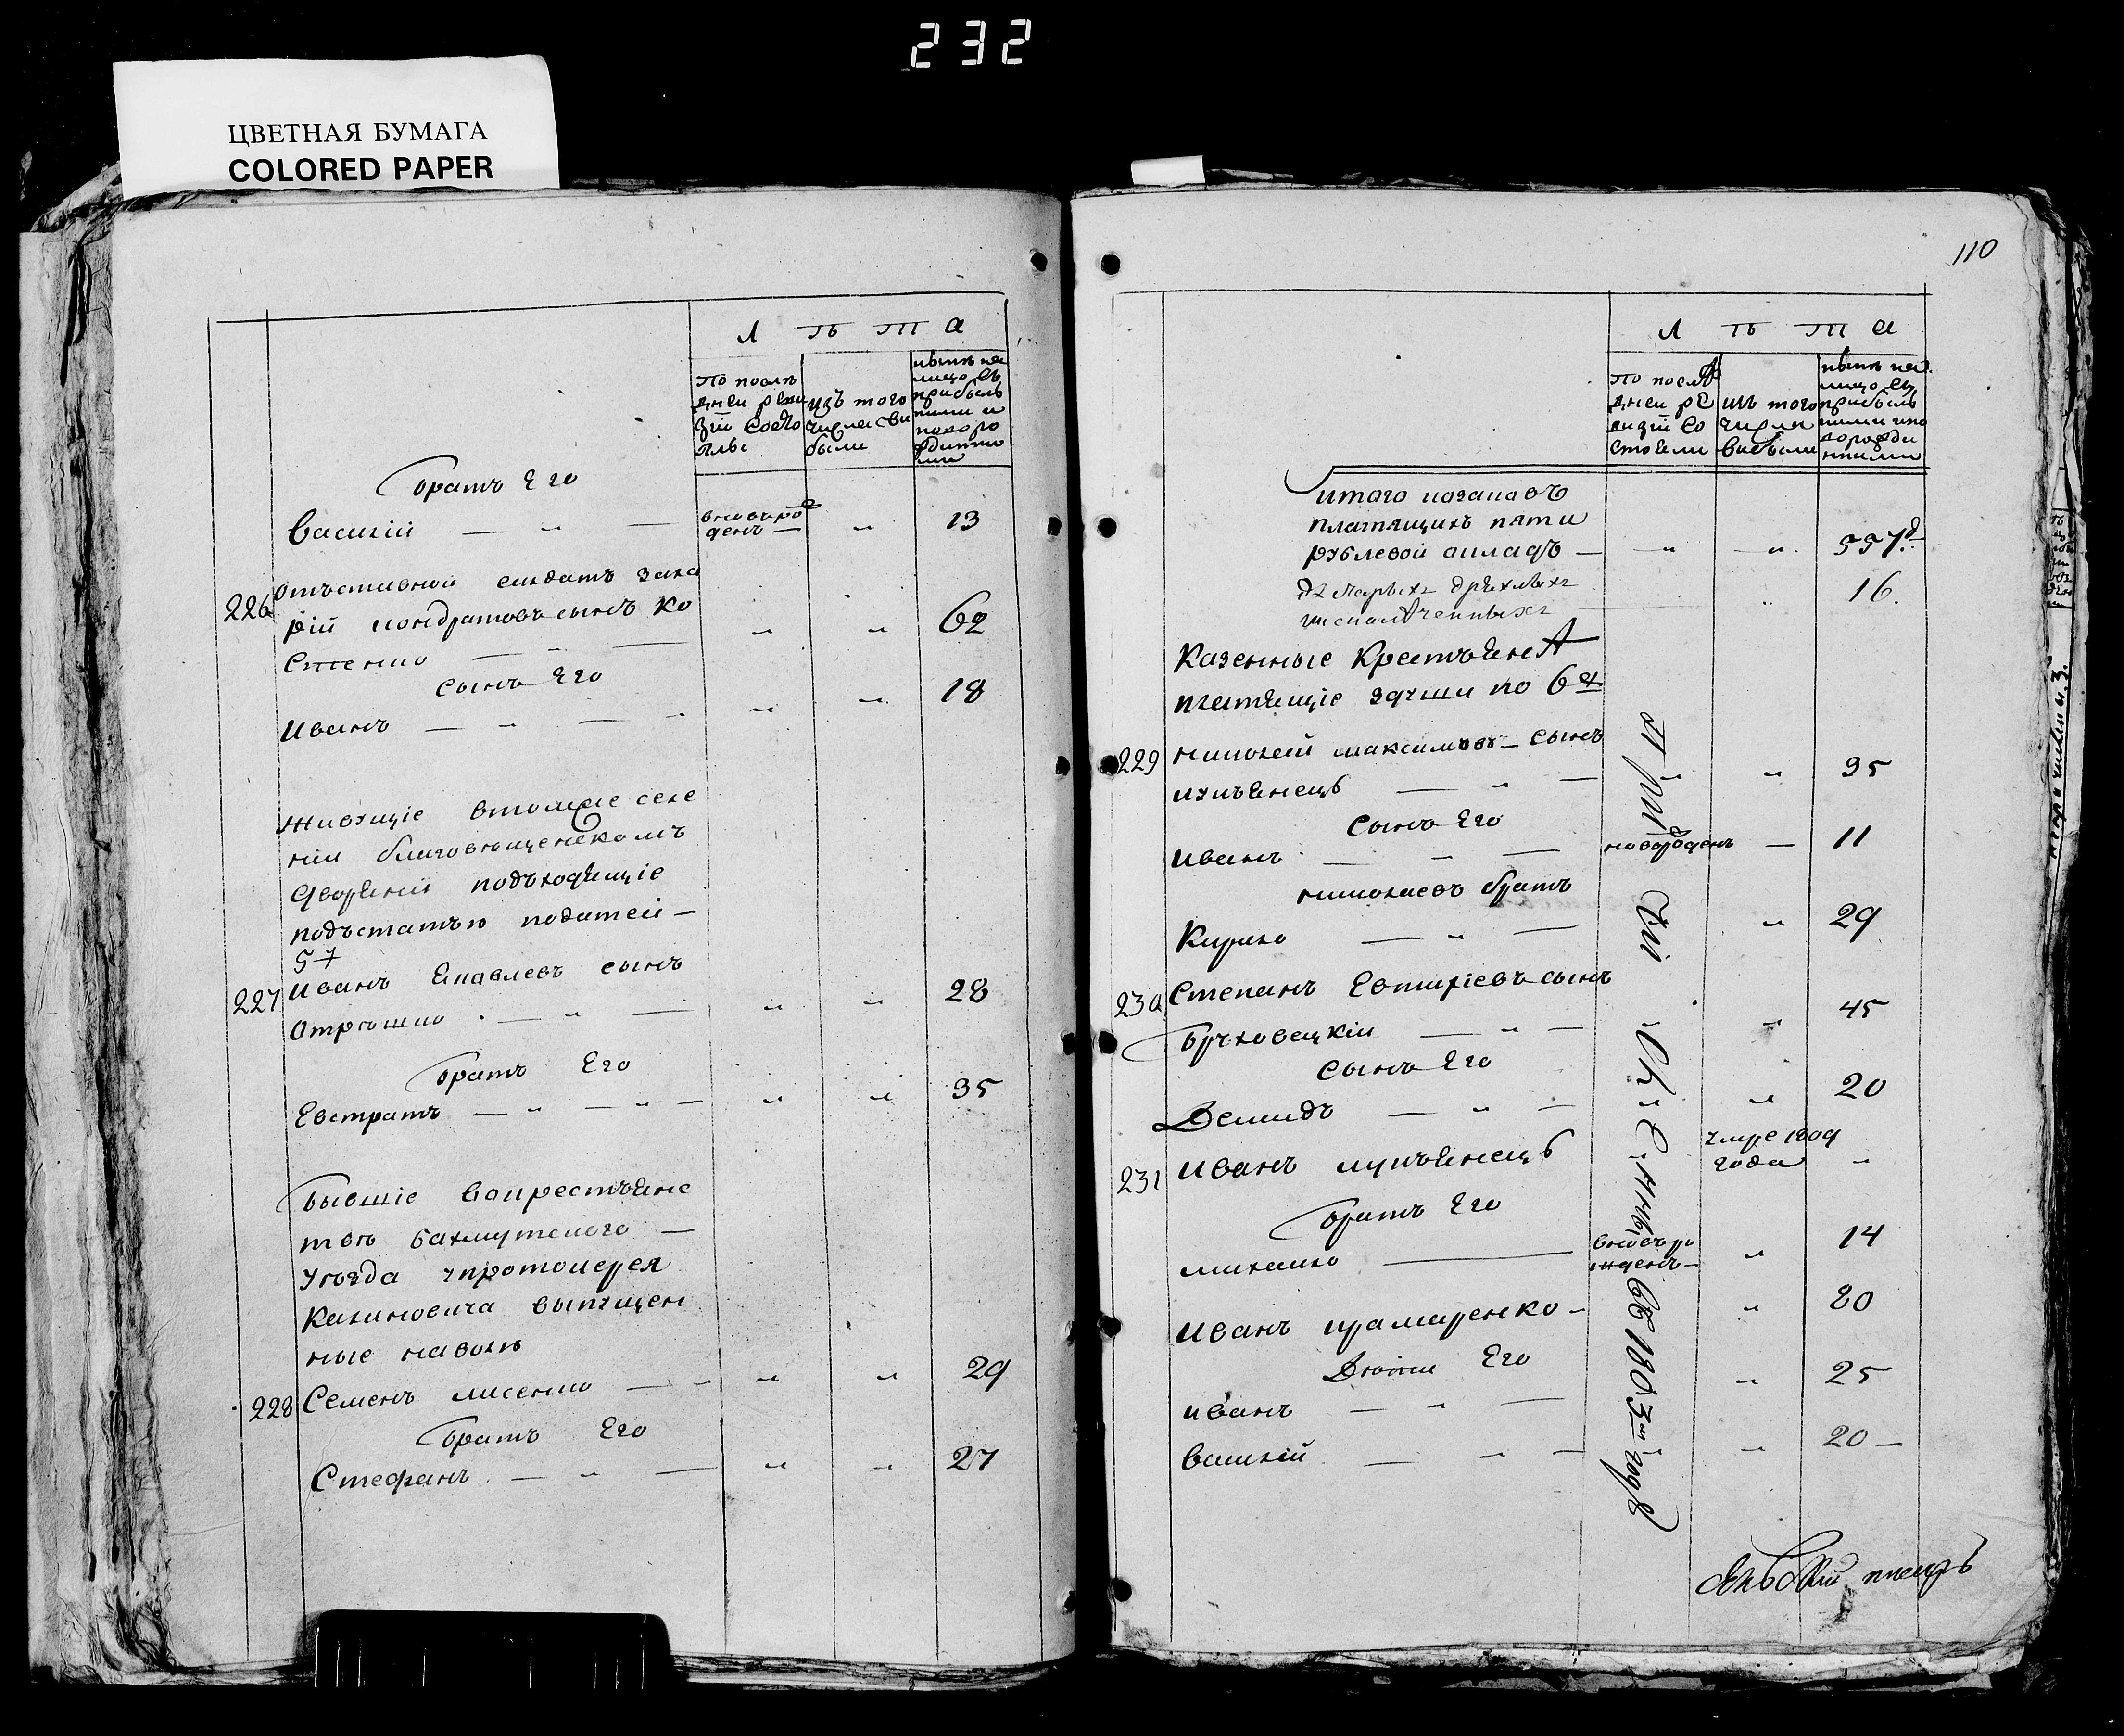 232
ЦВЕТНАЯ БУМАГА
COLORED PAPER
Л ѣ т а
По послѣ
дней реви
зіи состо
ялы
изъ того
числа вы
были
нынѣ на
лицо съ
прибыль
ними и
новоро
жденны
ми
братъ Его
василій — " —
вновьро
денъ —
" 13
226
отъставной салдатъ заха
рій кондратовъ сынъ ко
стенко — " —
" " 62
сынъ Его
иванъ — " — "
" " 18
живущіе втомже селе
ніи благовещенскомъ
дворяніи подъходящіе
подъстатью податей —
57
227
иванъ Яковлевъ сынъ
отрошко — " —
" " 28
братъ Его
Евстратъ — " — " —
" " 35
бывшіе вкрестьянс
твѣ бахмутского —
уѣзда упротоиерея
Калиновича выпущен
ные наволю
228
Семенъ лисенко — "
" " 29
братъ Его
Стефанъ — " —
" " 27
110
Л ѣ т а
По послѣ
дней ре
визіи со
стояли
изъ того
числа
выбыли
нынѣ на
лицо съ
прибыль
ними и но
ворожде
нными
итого козаковъ
платящихъ пяти
рублевой окладъ —
— " — " 557
16.
Казенные Крестьяне
платящіе здуши по 6
229
николай максимовъ — сынъ
лупъянецъ — " —
" 35
сынъ Его
иванъ — — —
новорожденъ — 11
николаевъ братъ
Кирило — " —
" 29
230
Степанъ Евтиріевъ сынъ
бруховецкій — " —
" 45
сынъ Его
Демидъ — " —
" 20
231
иванъ лупъянецъ
умре 1809
года —
братъ Его
михайло —
вновьро
жденъ —
" 14
иванъ крамаренко —
" 80
Дѣти Его
иванъ — " —
" 25
василій — " —
" 20 —
въ 1803 году
писарь